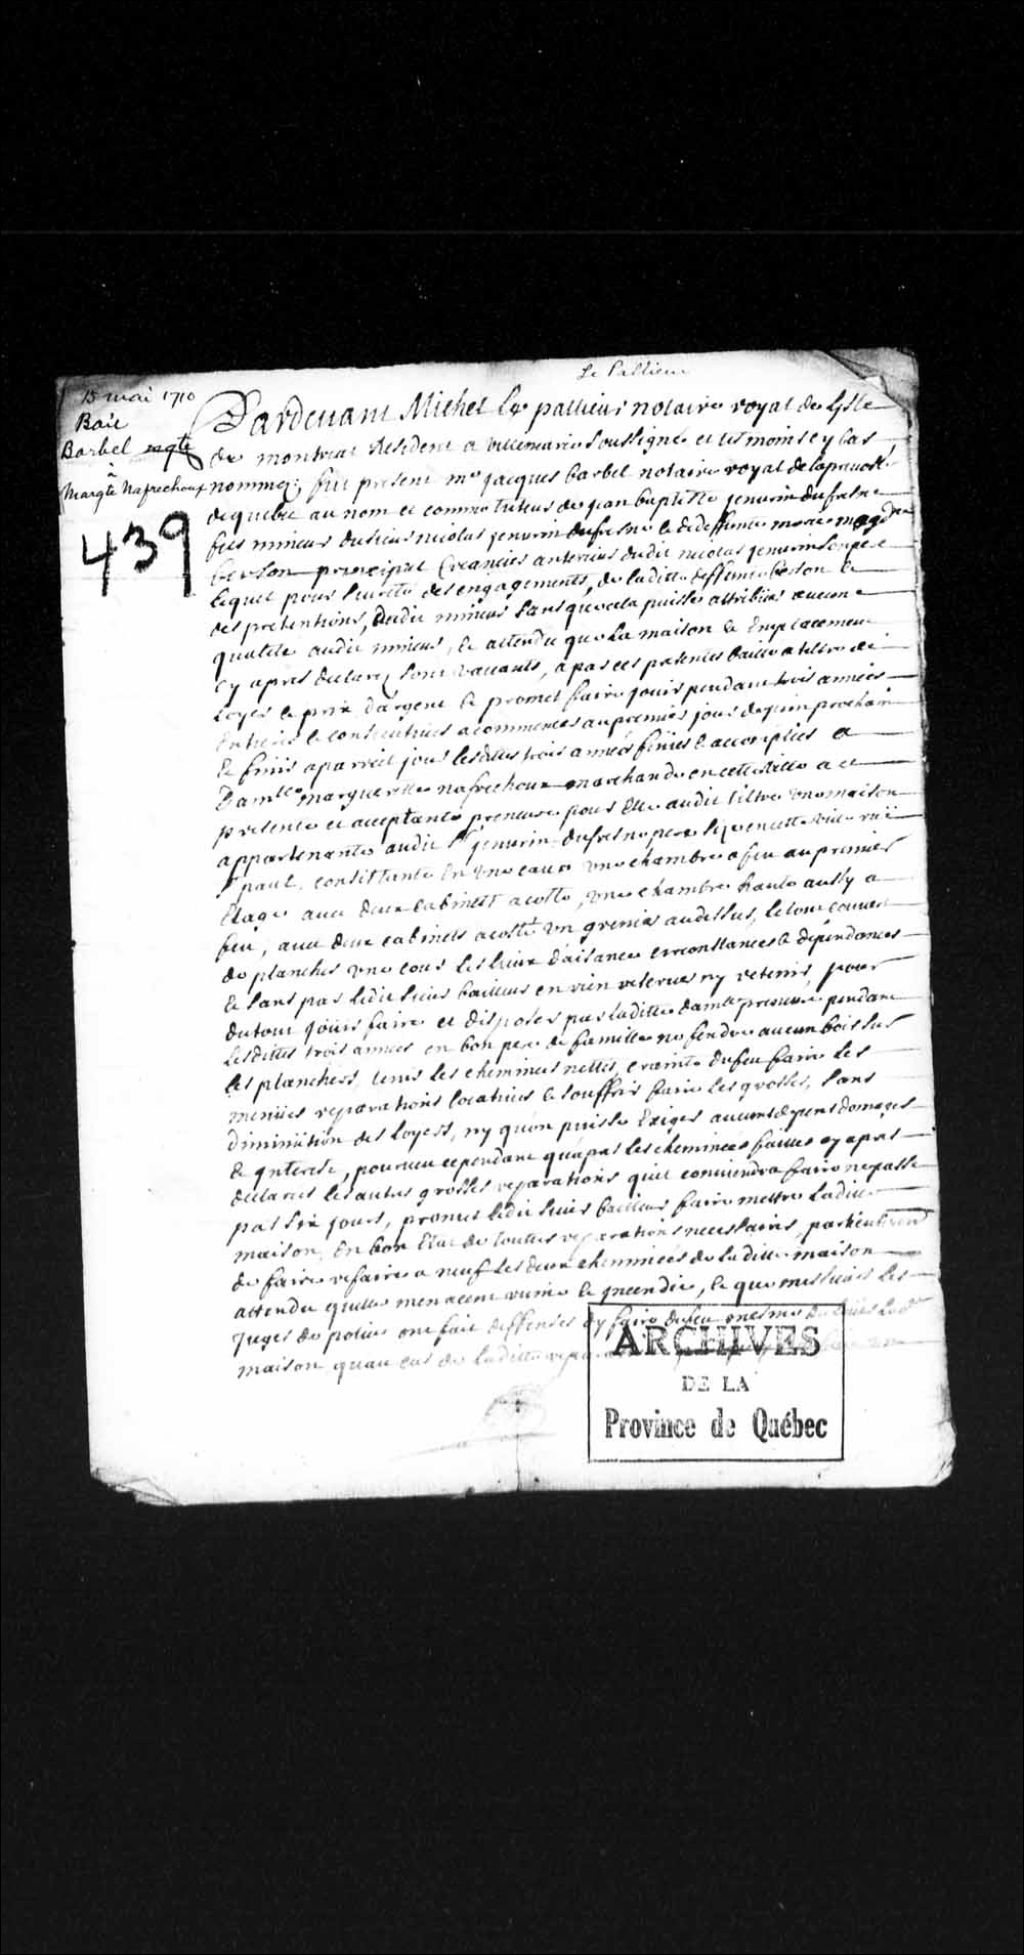 Le Pallieur
15 mai 1710
Bail
Barbel
à
Margte Nafrechoux
439
Pardevant Michel Le pallieur notaire royal de Lisle
de montreal Resident a villemarie soussigné et tesmoins cy bas
nommez; fut present me jacques barbel notaire royal de la prevosté
de quebec au nom et comme tuteur de jean baptiste jenvrin dufresne
fils mineur du sieur nicolas jenvrin dufresne & de deffunte marie magdne
berson principal Creancier anterieur dudit nicolas jenvrin son pere
lequel pour seureté des engagements, de laditte deffunte berson &
des pretentions, dudit mineur sans que cela puisse attribuer aucune
qualité audit mineur, & attendu que La maison & Emplacement
cy apres declarez sont vaccants, a par ces presentes baillé a tiltre de
Loyer & prix d'argent & promet faire jouir pendant trois années
entieres & consecutives a commencer au premier jour de juin prochain
& finir a pareil jour lesdittes trois années finies & accomplies a
Damlle margueritte nafrechoux marchande en cette ville a ce
presente et acceptante preneuse pour Elle audit tiltre une maison
appartenante audit Sr jenvrin dufresne pere size en cette ville rüe
St paul, consistante En une cave une chambre a feu au premier
Etage avec deux cabinets a costé, une chambre haute aussy a
feu, avec deux cabinets a costé un grenier au dessus, le tout couvert
de planches une cour les lieux d'aisance circonstances & dependances
& sans par ledit sieur bailleur en rien reserver ny retenir, pour
du tout joüir faire et disposer par laditte damlle preneuse pendant
lesdittes trois années en bon pere de famille ne fendre aucun bois sur
les planchers, tenir les cheminées nettes, crainte du feu faire les
menües reparations locatives & souffrir faire les grosses, sans
diminution des loyers, ny qu'on puisse Exiger aucuns depens domages
& interests, pourveu cependant qu'apres les cheminées faittes cy apres
declarées les autres grosses reparations quil conviendra faire ne passe
pas six jours, promet ledit sieur bailleur faire mettre Laditte
maison, En bon Etat de toutes reparations necessaires, particulierement
de faire refaire a neuf les deux cheminées de laditte maison
attendu quelles menacent ruine & jncendie, & que messieurs les
juges de police ont fait deffenses dy faire du feu mesme de Loüer Lade
maison quau cas de laditte
ARCHIVES
DE LA
Province de Québec